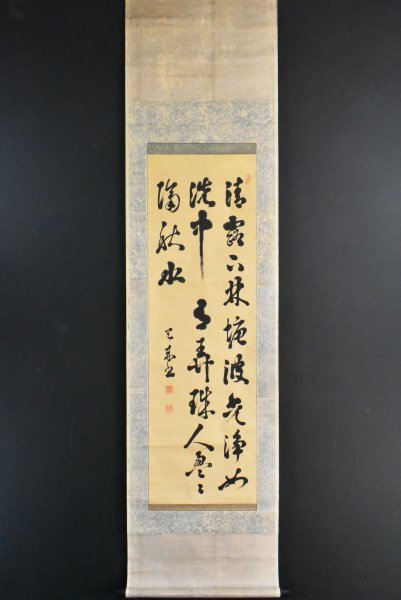 清露下林塘波光淨如
洗中有弄珠人盈々
隔秋水